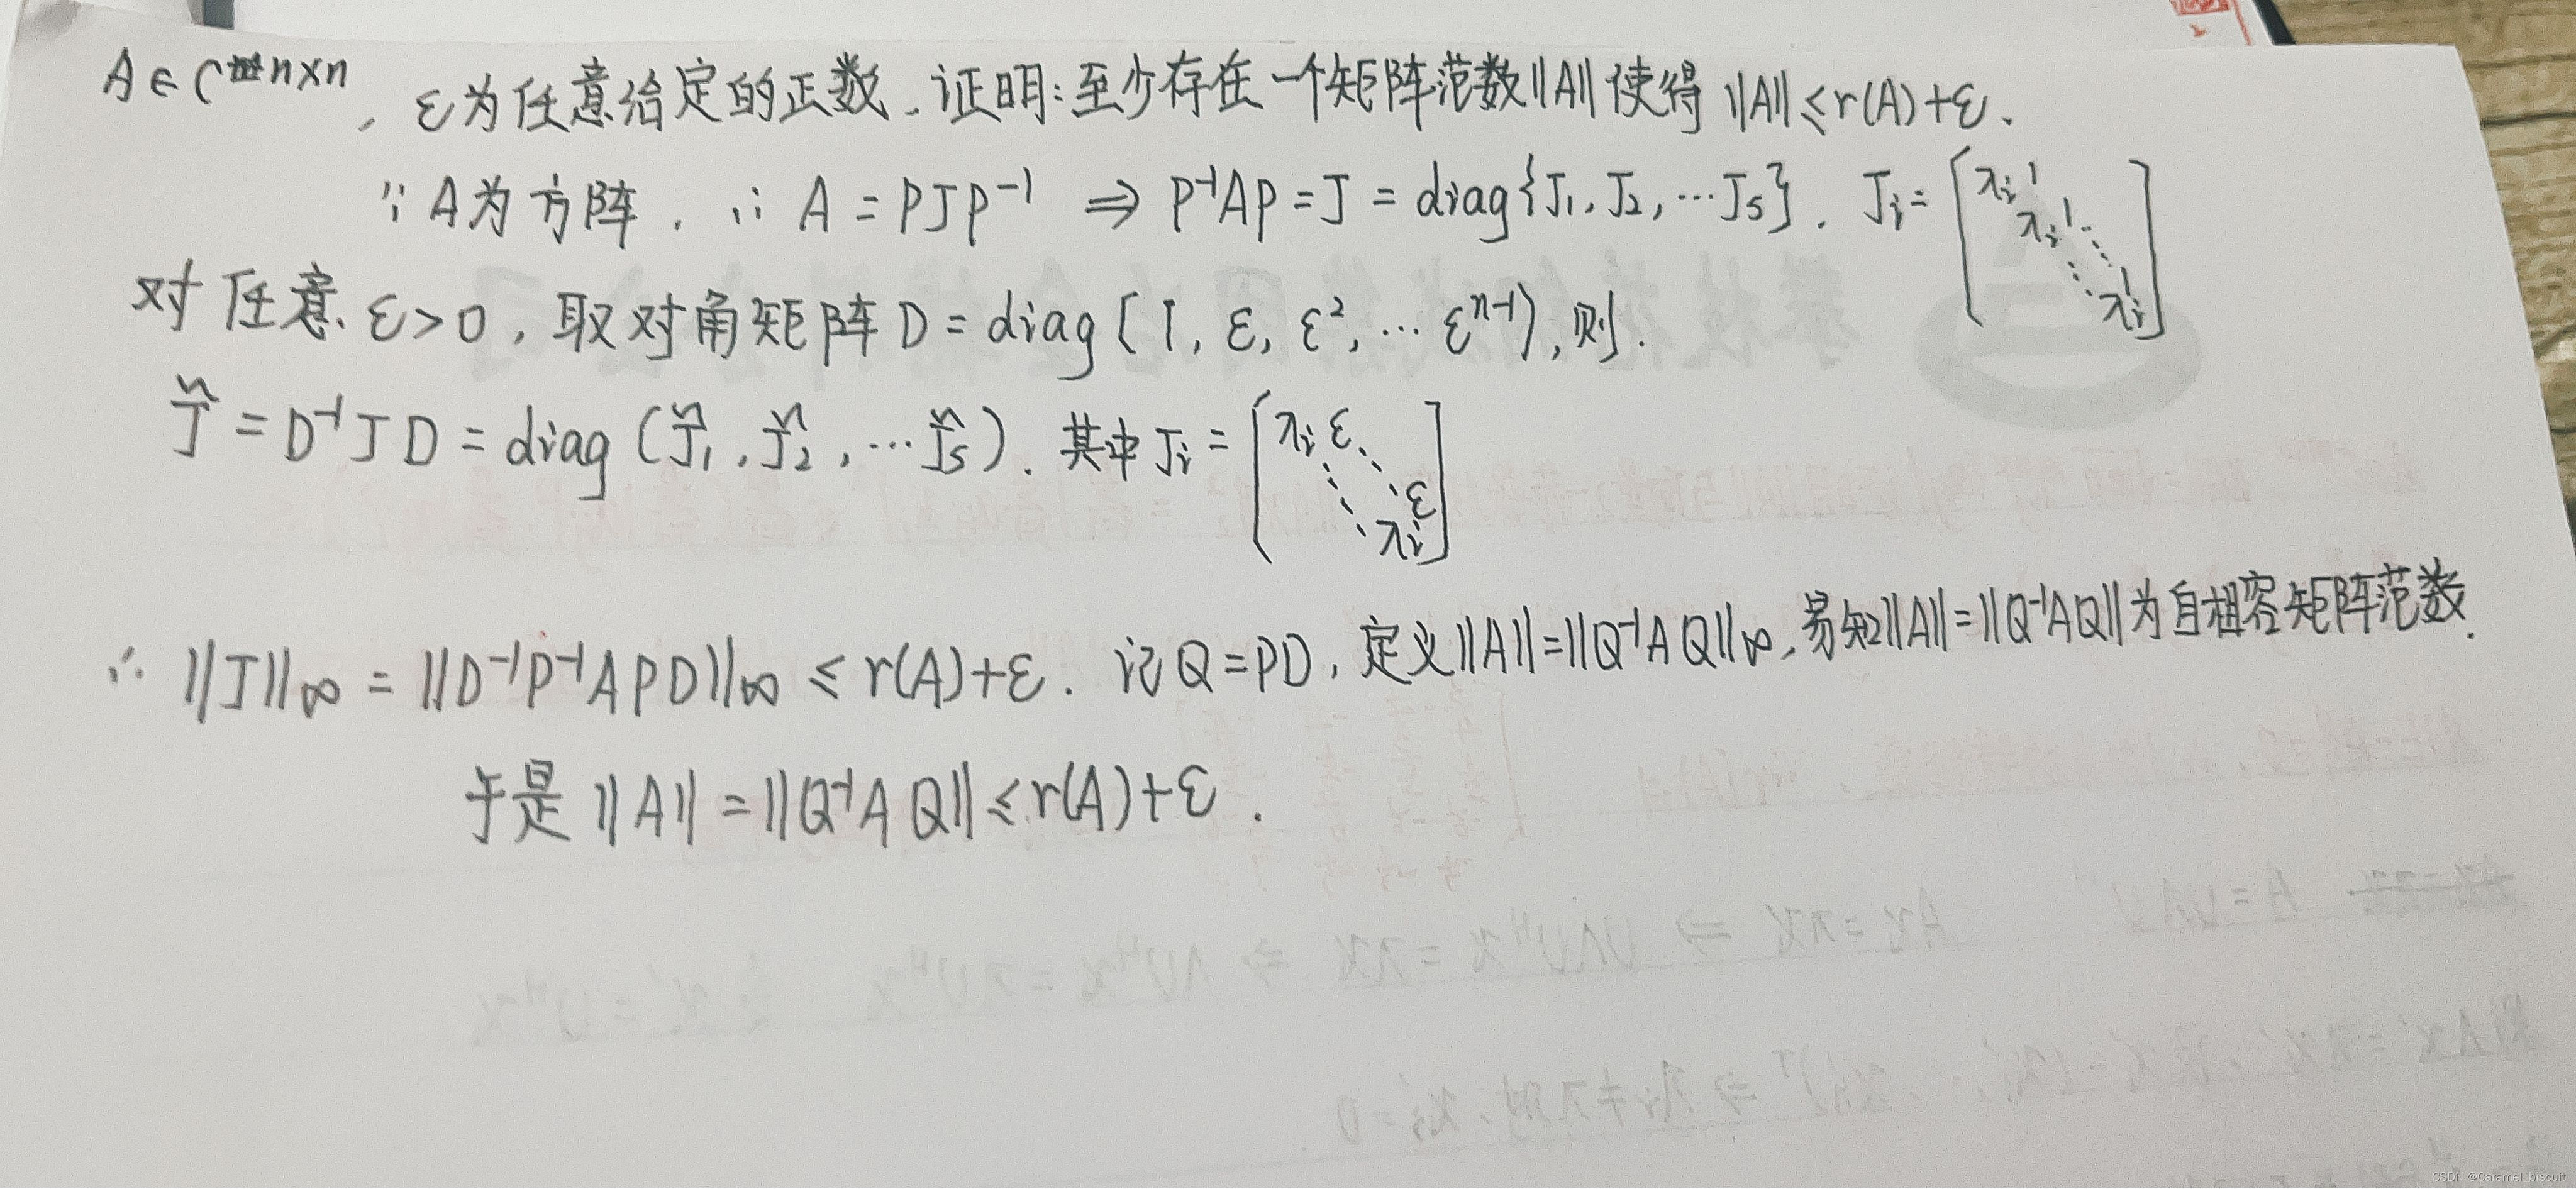 A∈C^{n×n}, ε为任意给定的正数. 证明:至少存在一个矩阵范数||A||使得||A||≤r(A)+ε.
∵A为方阵. ∴ A = PJP⁻¹ ⇒ P⁻¹AP = J = diag{J₁, J₂, ⋯ Jₛ}. Jᵢ = [λᵢ 1 λᵢ 1 ⋱ ⋱ 1 λᵢ]
对任意 ε>0, 取对角矩阵 D = diag(1, ε, ε², ⋯ ε^{n-1}), 则.
J̃ = D⁻¹JD = diag(J̃₁, J̃₂, ⋯ J̃ₛ). 其中 Jᵢ = [λᵢ ε ⋱ ⋱ ε λᵢ]
∴ ||J||∞ = ||D⁻¹P⁻¹APD||∞ ≤ r(A)+ε. 记Q=PD, 定义||A||=||Q⁻¹AQ||∞, 易知||A||=||Q⁻¹AQ||为自相容矩阵范数.
于是 ||A|| = ||Q⁻¹AQ|| ≤ r(A)+ε.
CSDN @Caramel_biscuit